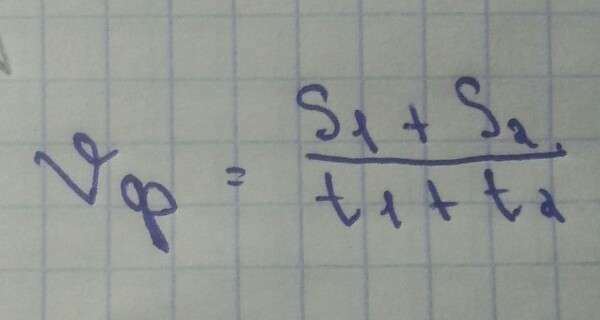 𝑣ср = S₁ + S₂ / t₁ + t₂